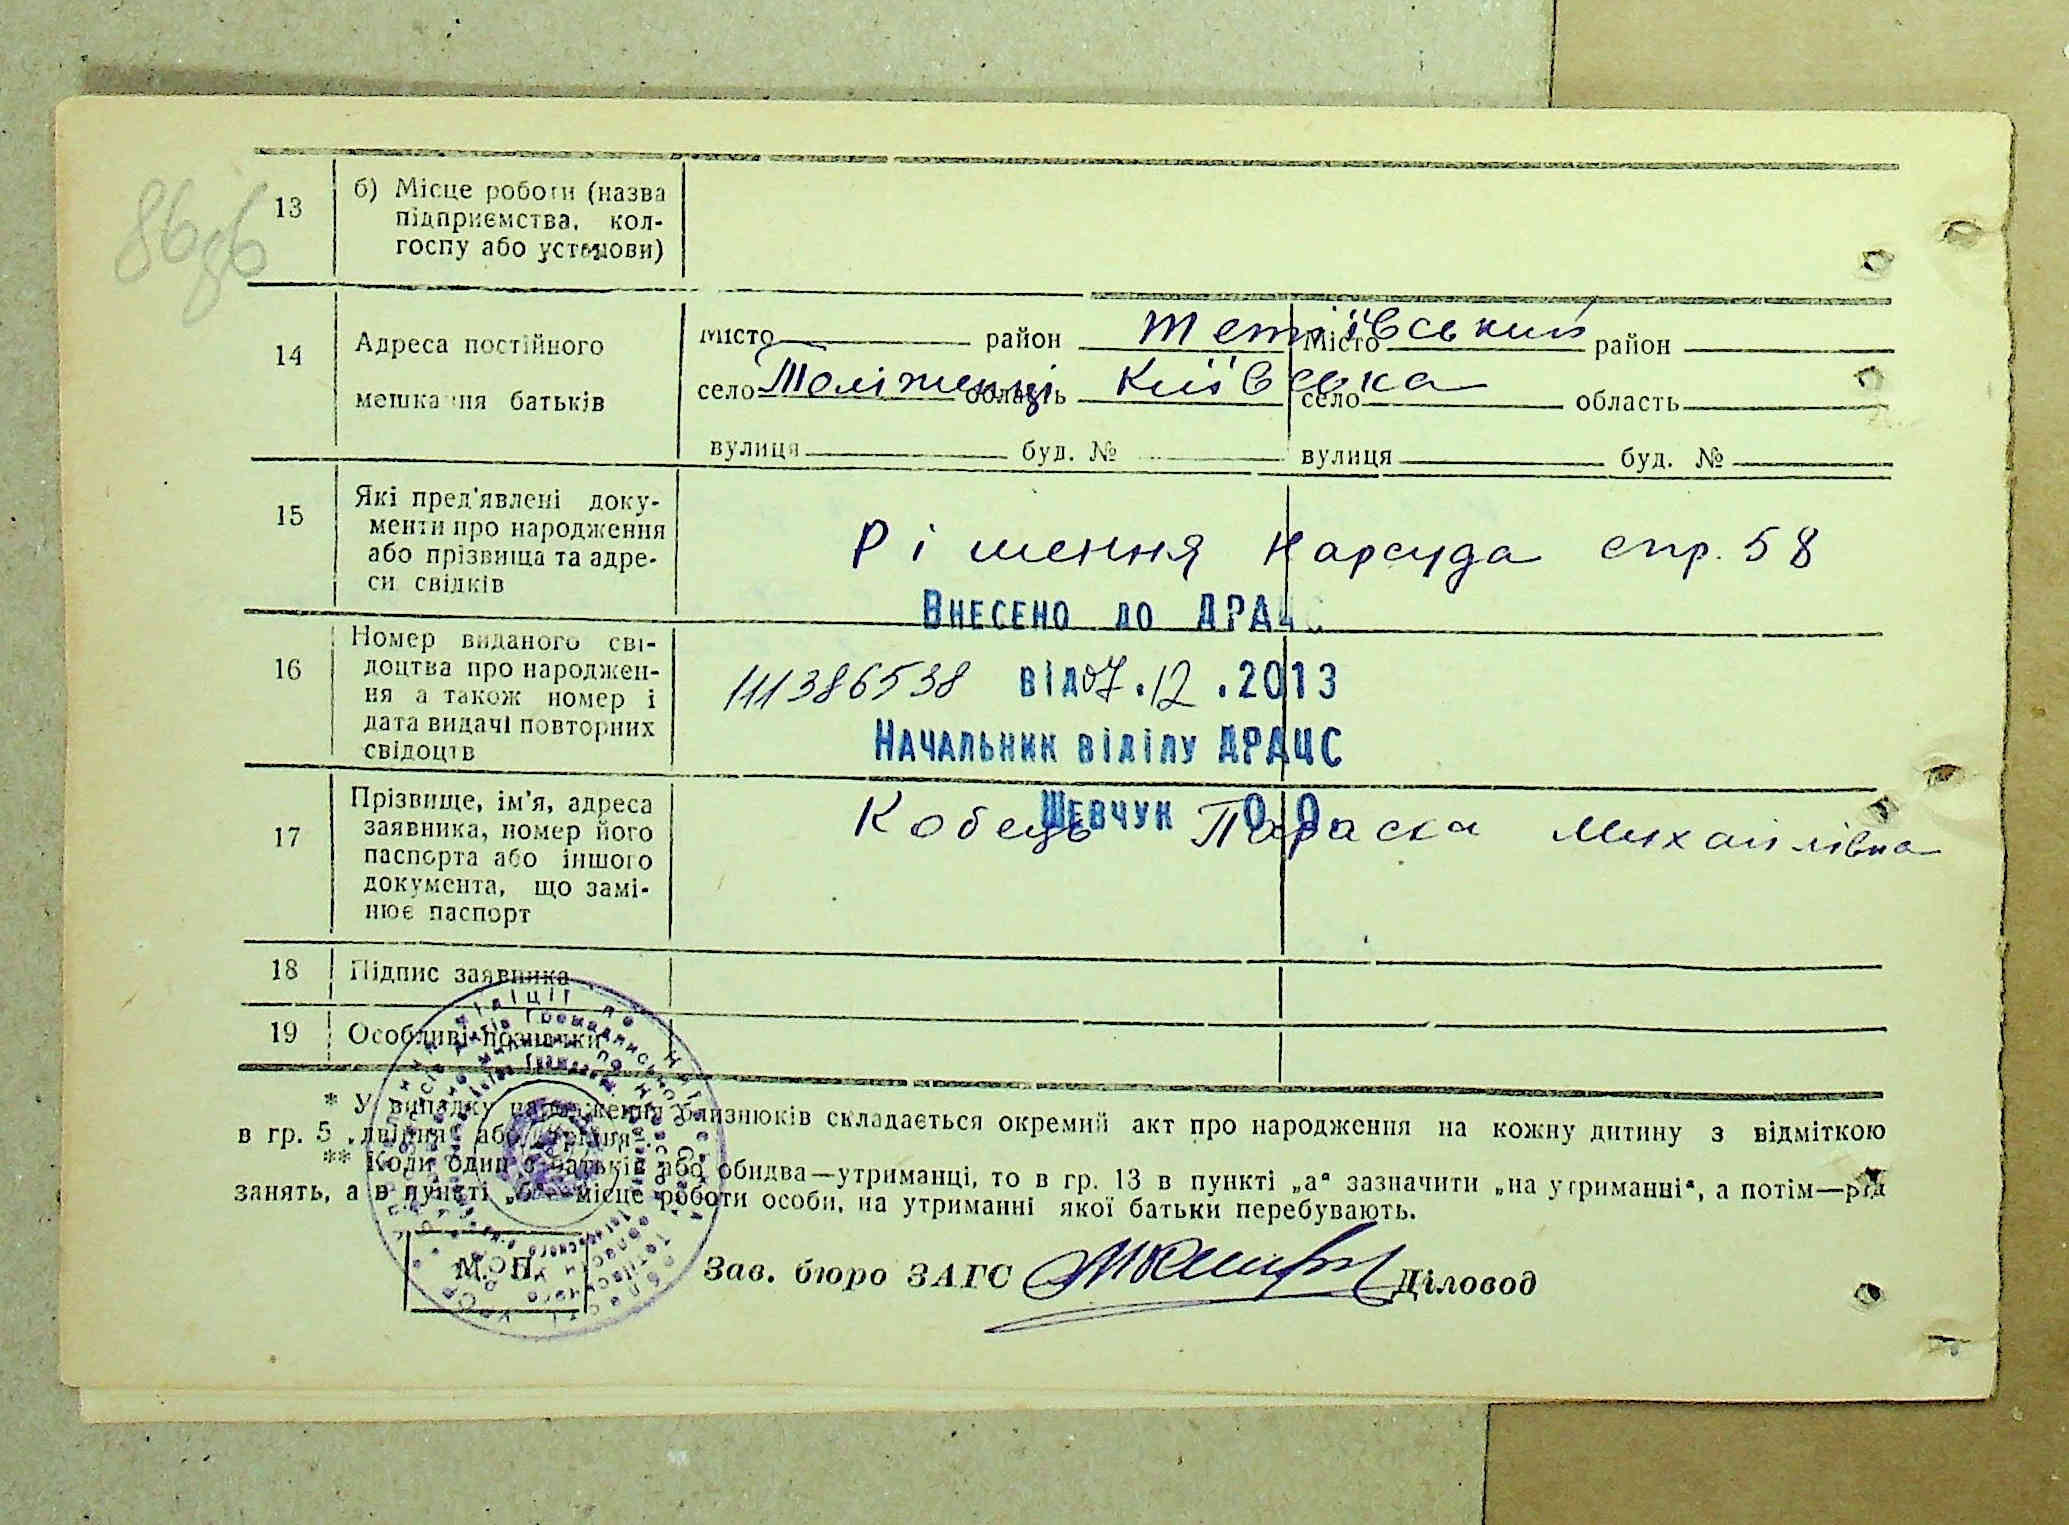 86 зв
13 б) Місце роботи (назва
підприємства, кол-
госпу або установи)
14 Адреса постійного
мешкання батьків
місто район Тетіївський місто район
село Теліженці область Київська село область
вулиця буд. № вулиця буд. №
15 Які пред'явлені доку-
менти про народження
або прізвища та адре-
си свідків
Рішення Нарсуда спр. 58
Внесено до ДРАЦС
16 Номер виданого сві-
доцтва про народжен-
ня а також номер і
дата видачі повторних
свідоцтв
111386538 від 07.12.2013
Начальник віділу ДРАЦС
Шевчук О.О.
17 Прізвище, ім'я, адреса
заявника, номер його
паспорта або іншого
документа, що замі-
нює паспорт
Кобець Параска Михайлівна
18 Підпис заявника
19 Особливі позначки
* У випадку народження близнюків складається окремий акт про народження на кожну дитину з відміткою
в гр. 5 „двійня" або „трійня".
** Коли один з батьків або обидва—утриманці, то в гр. 13 в пункті „а" зазначити „на утриманні", а потім—рід
занять, а в пункті „б"—місце роботи особи, на утриманні якої батьки перебувають.
М. П. Зав. бюро ЗАГС Діловод